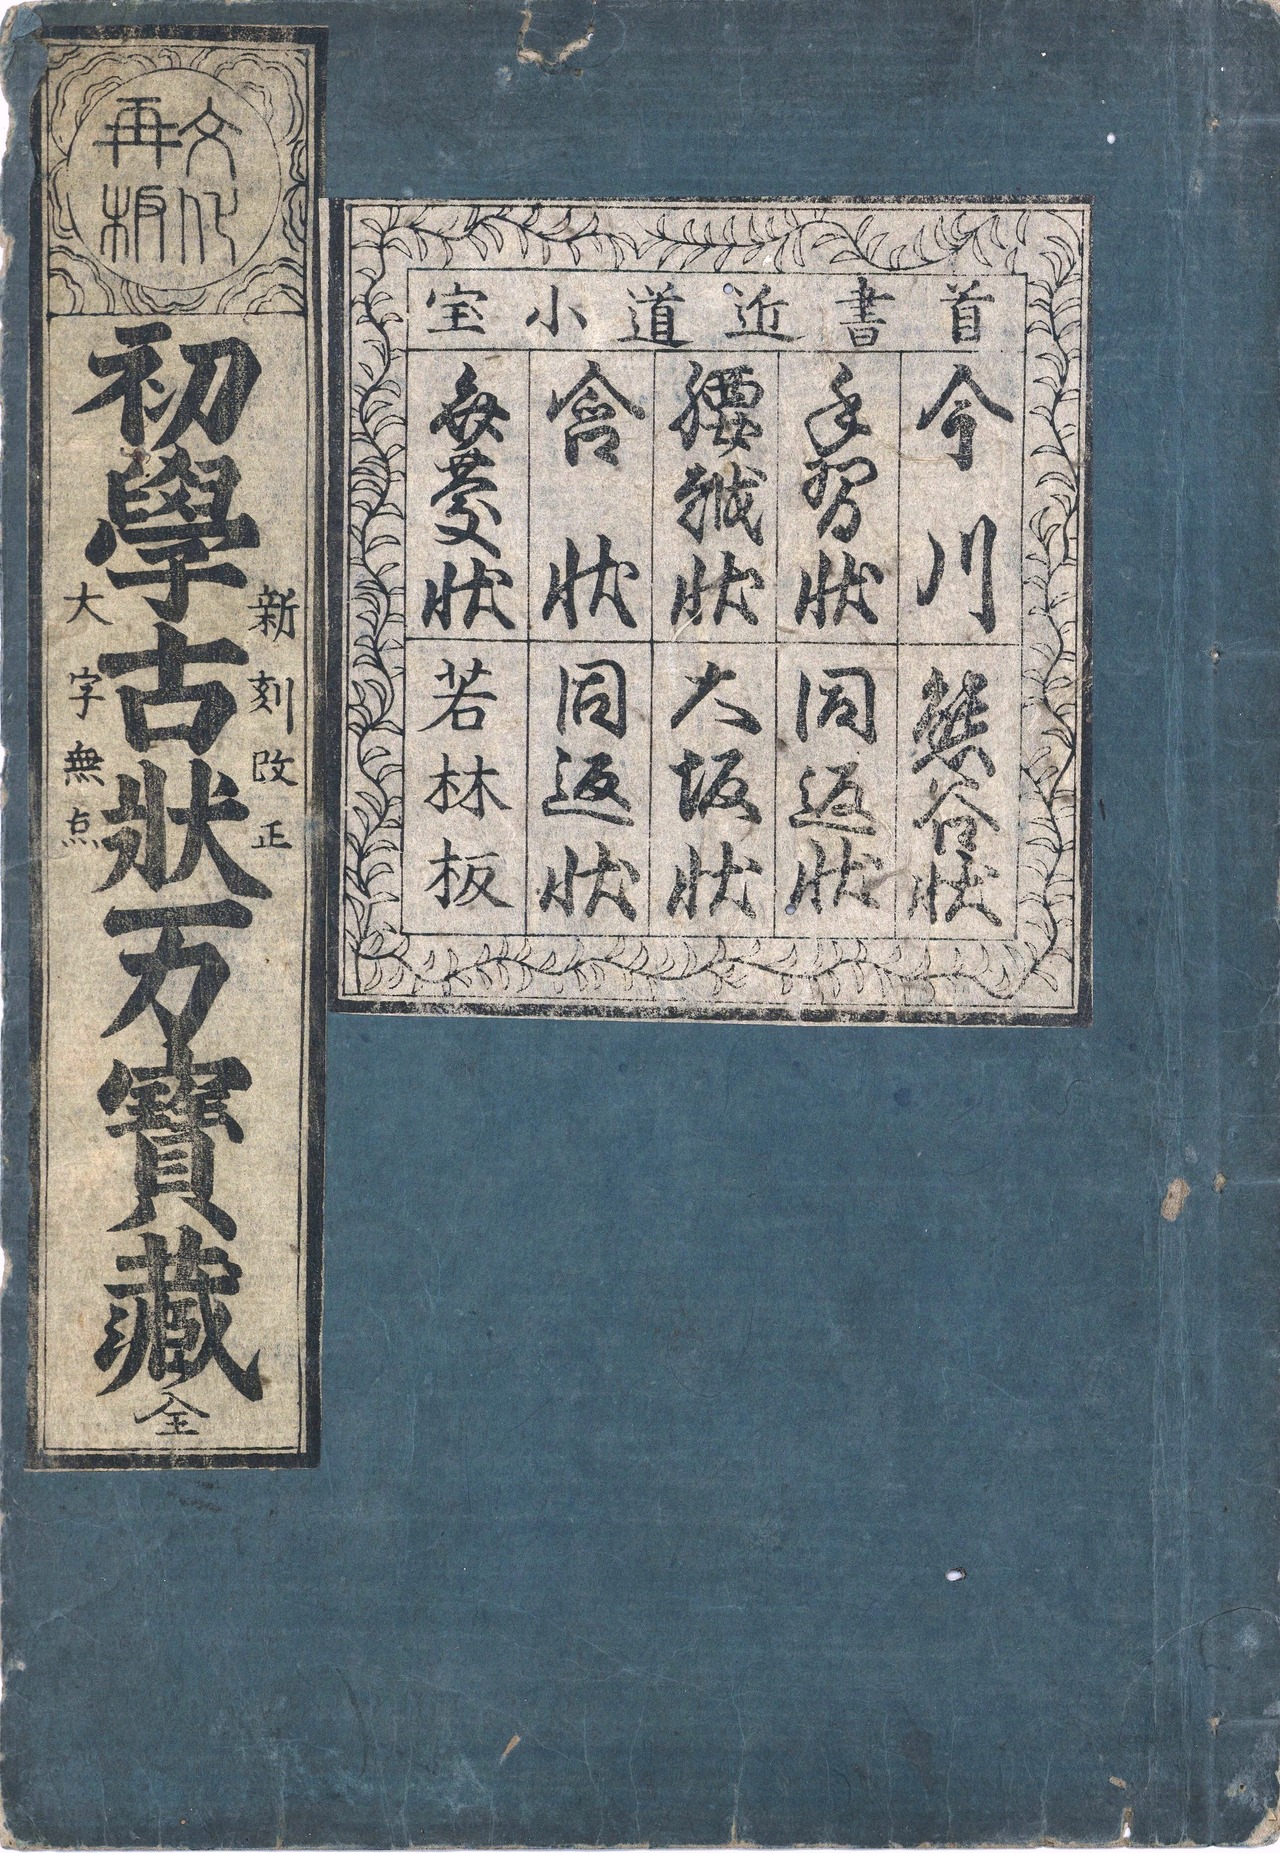 首書近道小宝
今川
手習状
腰越状
含状
弁慶状
熊谷状
同返状
大坂状
同返状
若林板
文化
再板
新刻改正
初學古狀万寳藏 全
大字無点